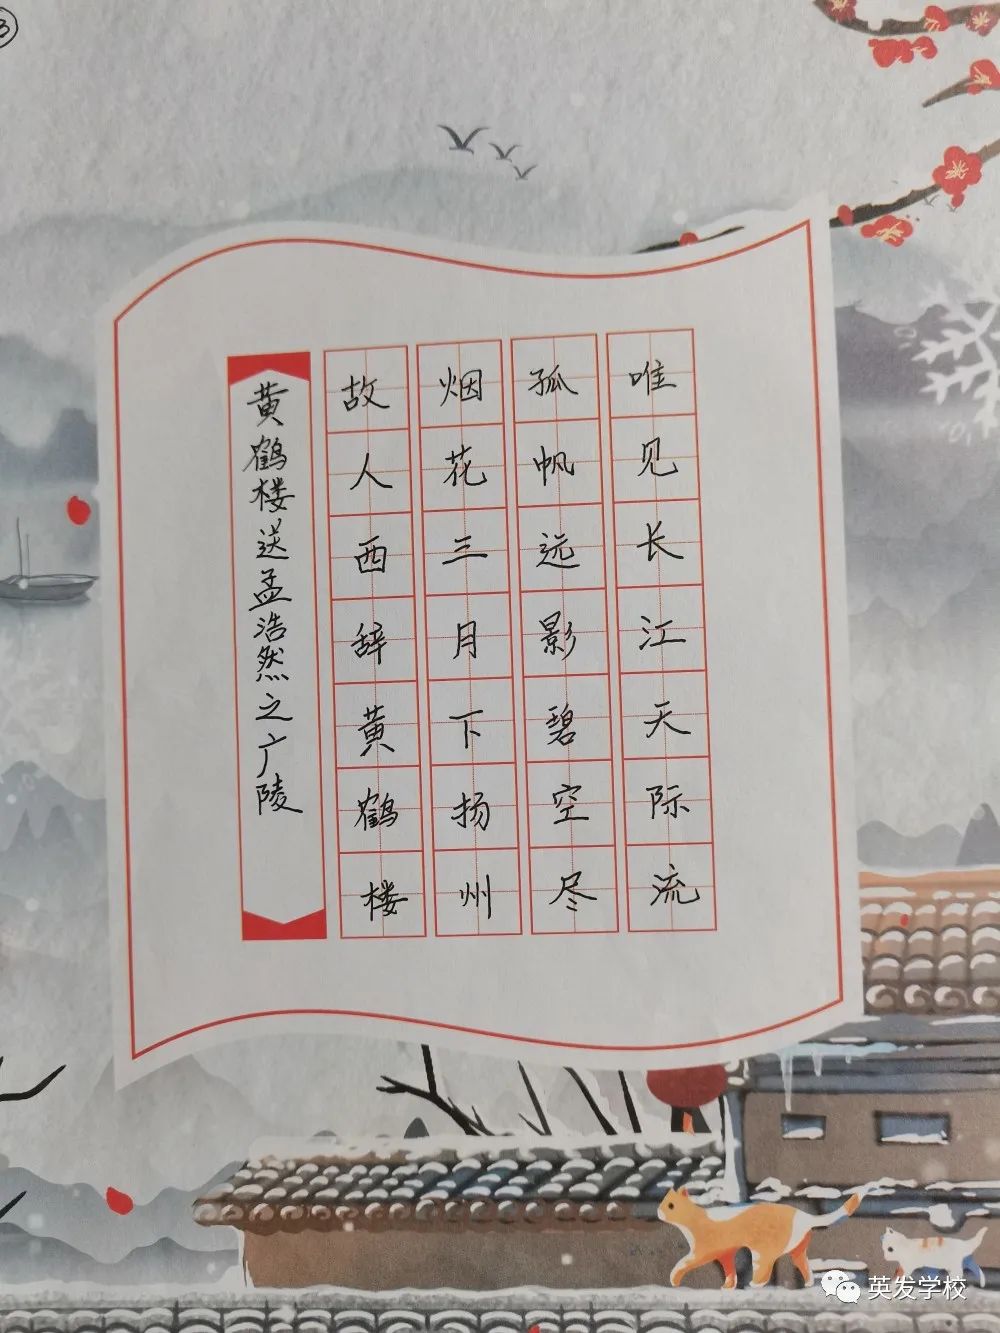 ③
黄鹤楼送孟浩然之广陵
故人西辞黄鹤楼
烟花三月下扬州
孤帆远影碧空尽
唯见长江天际流
英发学校